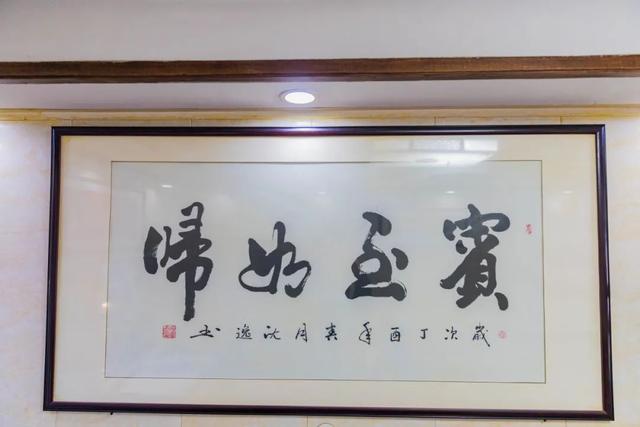 賓至如歸
歲次丁酉年春月沈逸书